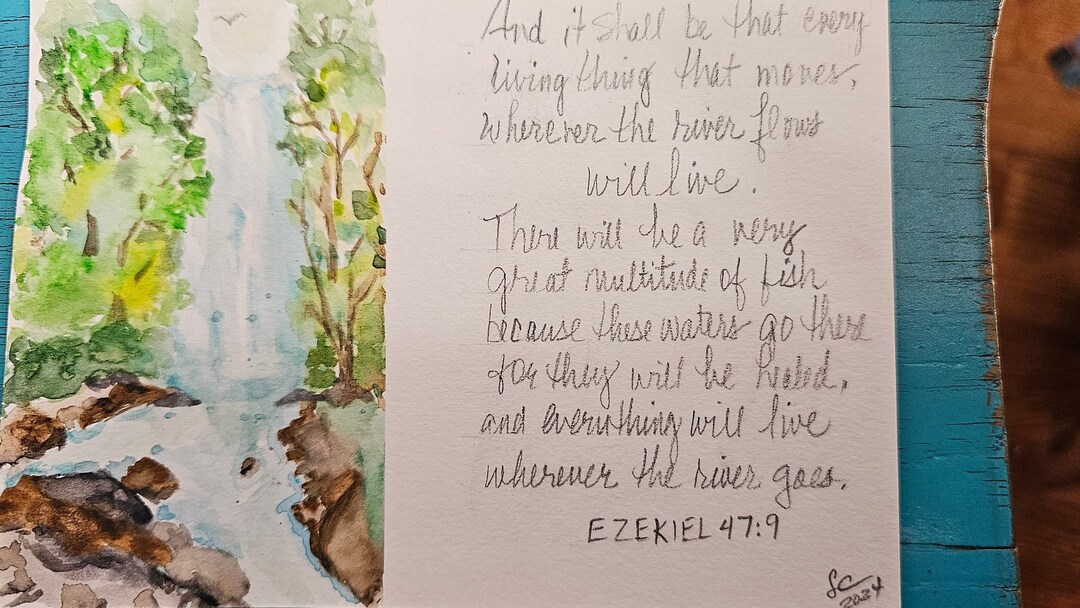 And it shall be that every
living thing that moves,
wherever the river flows
will live.
There will be a very
great multitude of fish
because these waters go there
for they will be healed,
and everything will live
wherever the river goes.
EZEKIEL 47:9
SC
2024